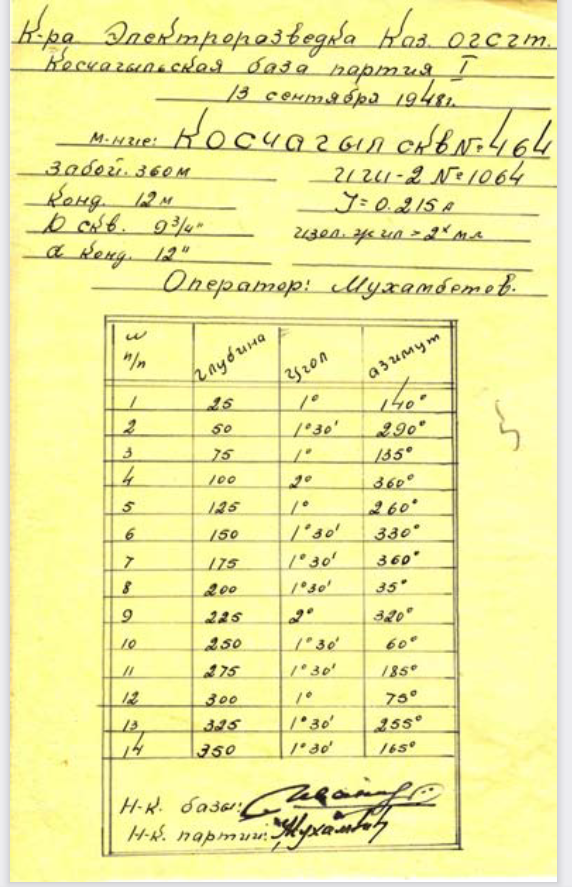 К-ра Электроразведка Каз. ОГСГТ.
Косчагыльская база партия I
13 сентября 1948г.
м-ние: Косчагыл скв № 464
Забой. 360м
ИШ-2 № 1064
Конд. 12м
J = 0.215 А
D скв. 9 3/4"
изол. жил = 2ˣ мл
d конд. 12"
Оператор: Мухамбетов.
№ п/п глубина угол азимут
1 25 1° 140°
2 50 1°30' 290°
3 75 1° 135°
4 100 2° 360°
5 125 1° 260°
6 150 1°30' 330°
7 175 1°30' 360°
8 200 1°30' 35°
9 225 2° 320°
10 250 1°30' 60°
11 275 1°30' 185°
12 300 1° 75°
13 325 1°30' 255°
14 350 1°30' 165°
Н-к. базы:
Н-к. партии: Мухамбет